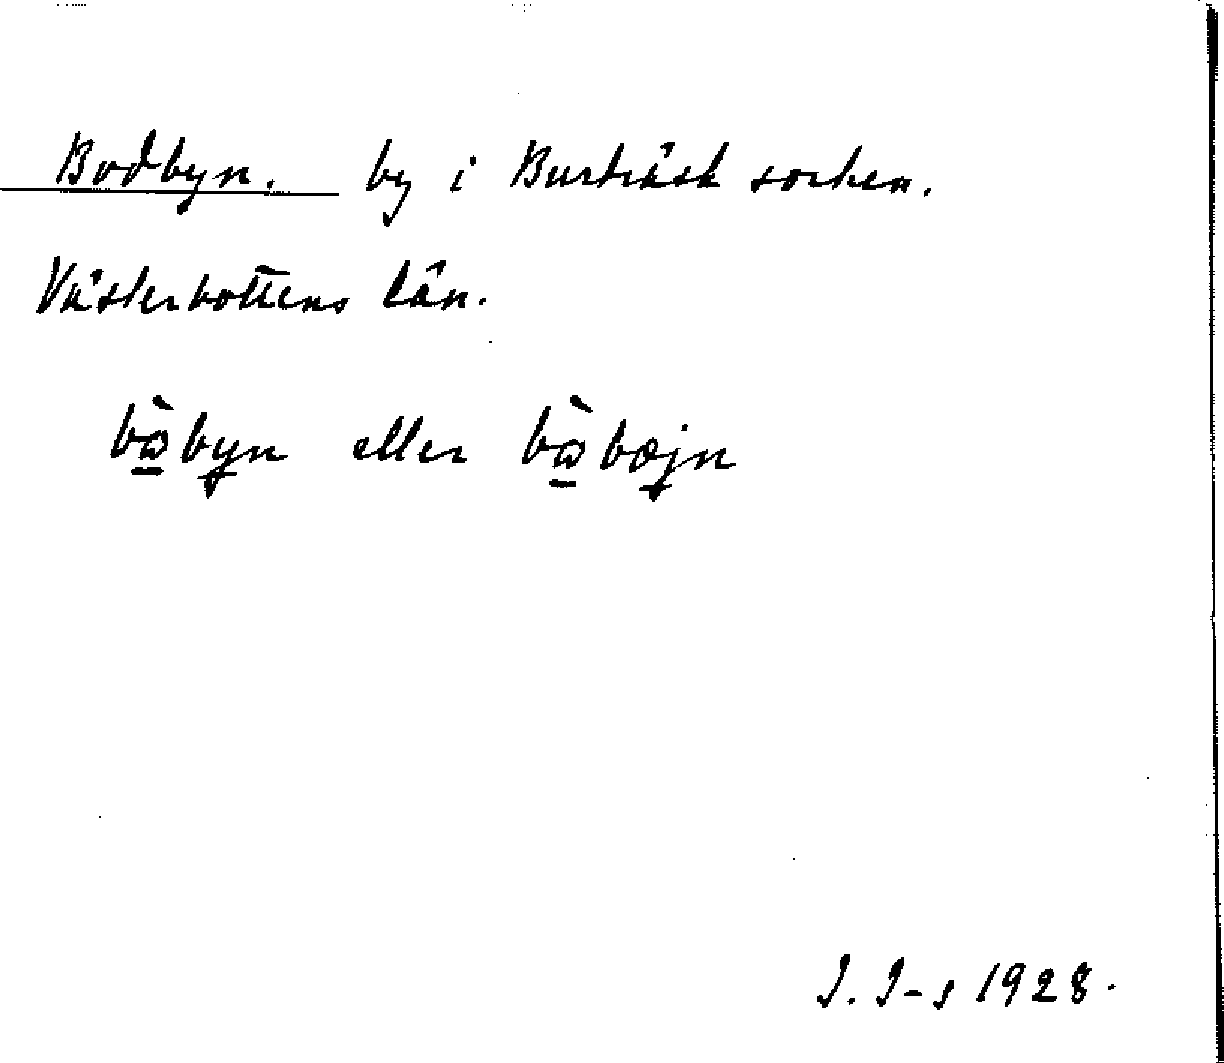 Bodbyn. by i Burträsk socken.
Västerbottens län.
bὰ̱byn eller bὰ̱bœjn
J. J-s 1928.